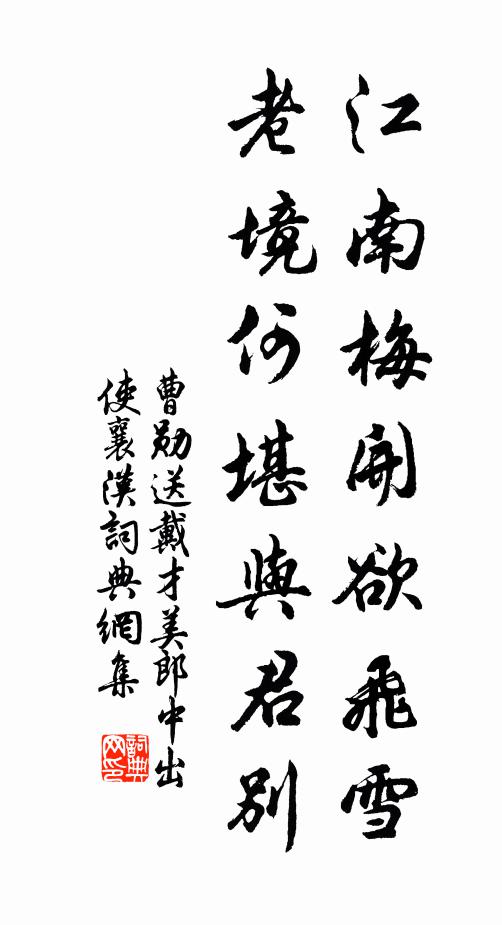 江南梅開欲飛雪
老境何堪與君別
曹勋送戴才美郎中出
使襄漢詞典網集
詞典
网印